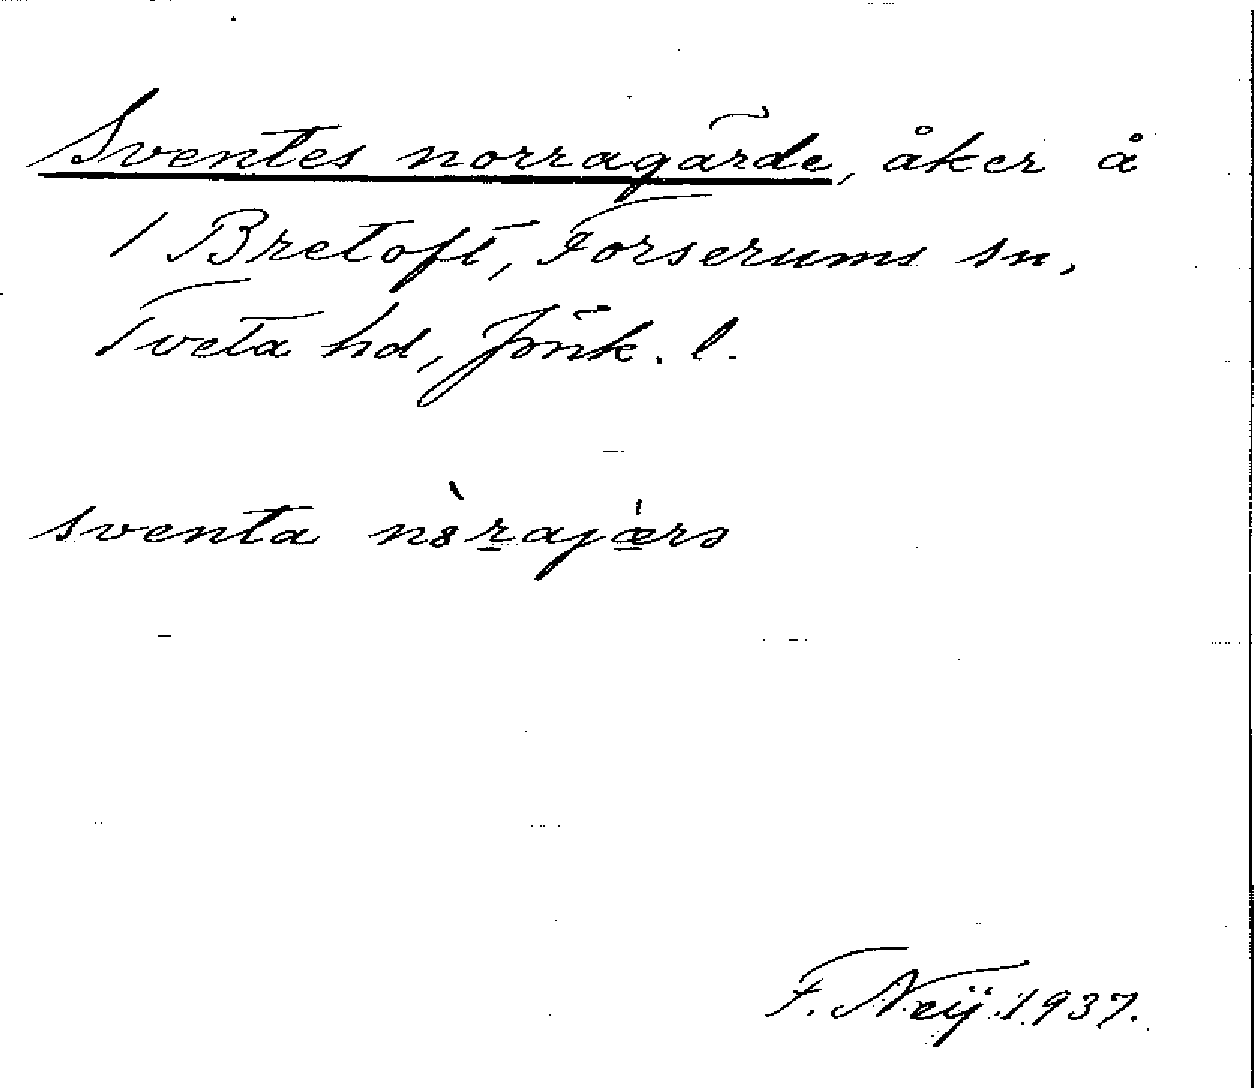 Sventes norragärde, åker å
1 Bretoft, Forserums sn,
Tveta hd, Jönk. l.
sventa n8̀rajæŕə
F. Neij 1937.